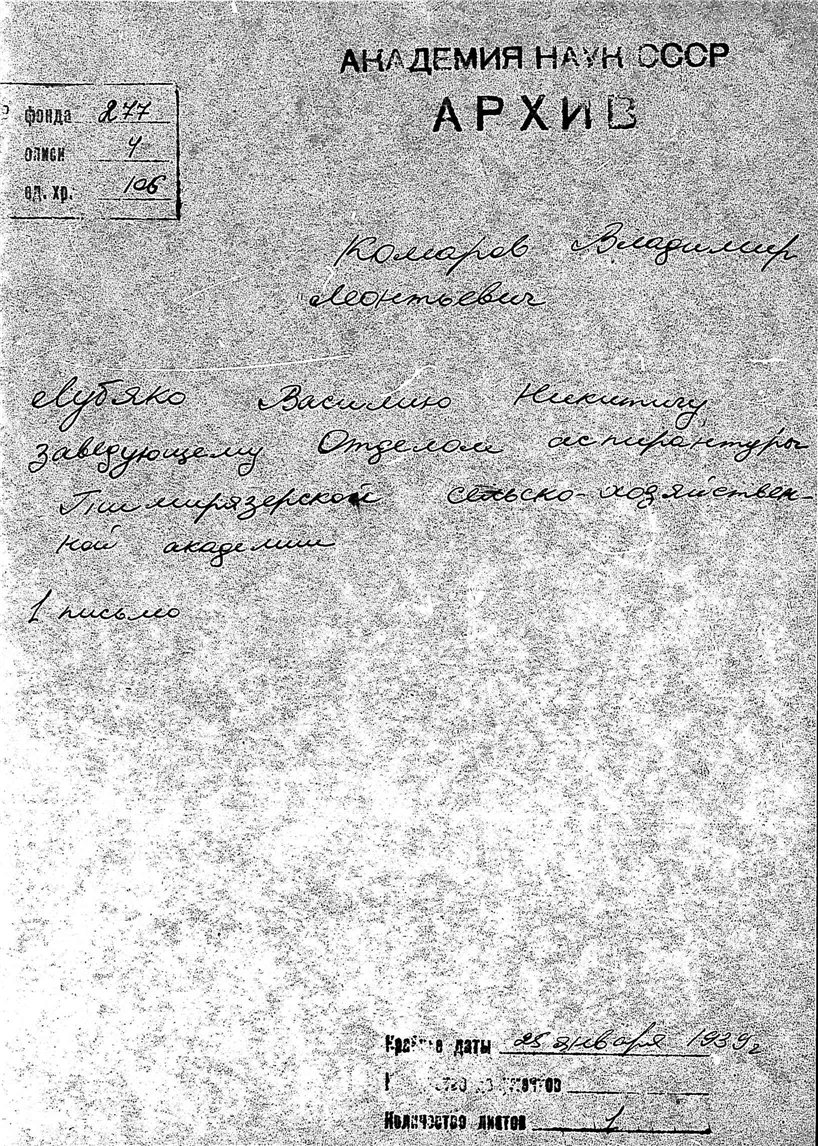 АКАДЕМИЯ НАУК СССР
АРХИВ
фонда 277
описи 4
ед. хр. 106
Комаров Владимир
Леонтьевич
Лубяко Василию Никитичу
заведующему Отделом аспирантуры
Тимирязерской сельско-хозяйствен-
ной академии
1 письмо
Крайние даты 25 января 1939 г
документов
Количество листов 1